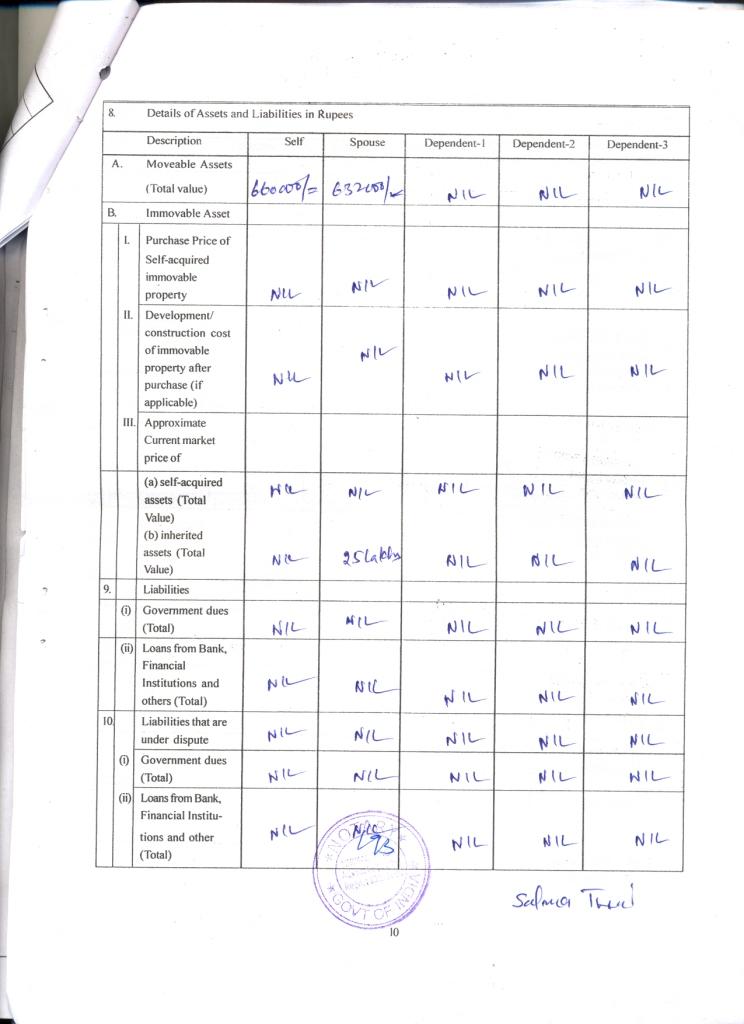 8. Details of Assets and Liabilities in Rupees
Description Self Spouse Dependent-1 Dependent-2 Dependent-3
A. Moveable Assets
(Total value) 660000/= 632000/- NIL NIL NIL
B. Immovable Asset
I. Purchase Price of
Self-acquired
immovable
property NIL NIL NIL NIL NIL
II. Development/
construction cost
of immovable
property after
purchase (if
applicable) NIL NIL NIL NIL NIL
III. Approximate
Current market
price of
(a) self-acquired
assets (Total
Value) NIL NIL NIL NIL NIL
(b) inherited
assets (Total
Value) NIL 25 Lakhs NIL NIL NIL
9. Liabilities
(i) Government dues
(Total) NIL NIL NIL NIL NIL
(ii) Loans from Bank,
Financial
Institutions and
others (Total) NIL NIL NIL NIL NIL
10. Liabilities that are
under dispute NIL NIL NIL NIL NIL
(i) Government dues
(Total) NIL NIL NIL NIL NIL
(ii) Loans from Bank,
Financial Institu-
tions and other
(Total) NIL NIL NIL NIL NIL
NOTARY
GOVT OF INDIA
Salma
10